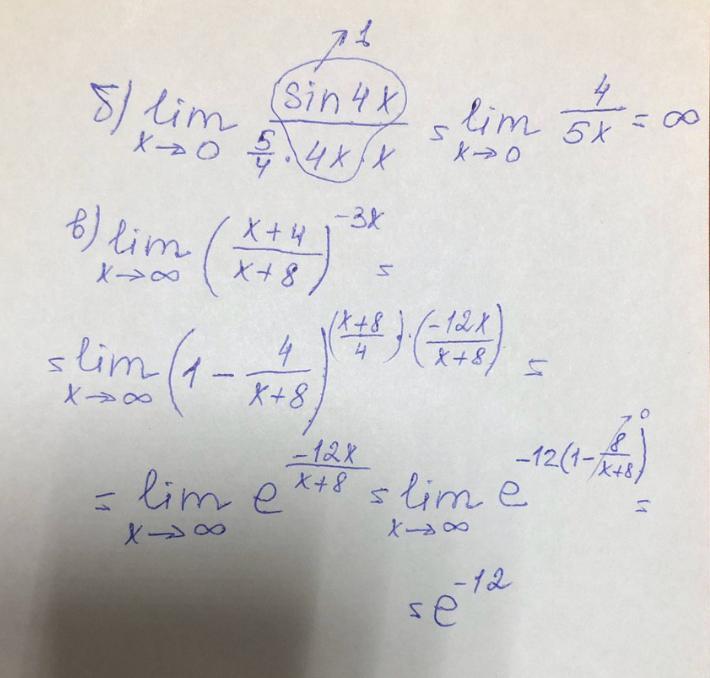 б) lim x→0 sin 4x / (5/4 · 4x · x) = lim x→0 4/(5x) = ∞
→1
в) lim x→∞ ((x+4)/(x+8))^(-3x) =
= lim x→∞ (1 - 4/(x+8))^(((x+8)/4) · (-12x/(x+8))) =
= lim x→∞ e^(-12x/(x+8)) = lim x→∞ e^(-12(1 - 8/(x+8))) =
→0
= e^(-12)